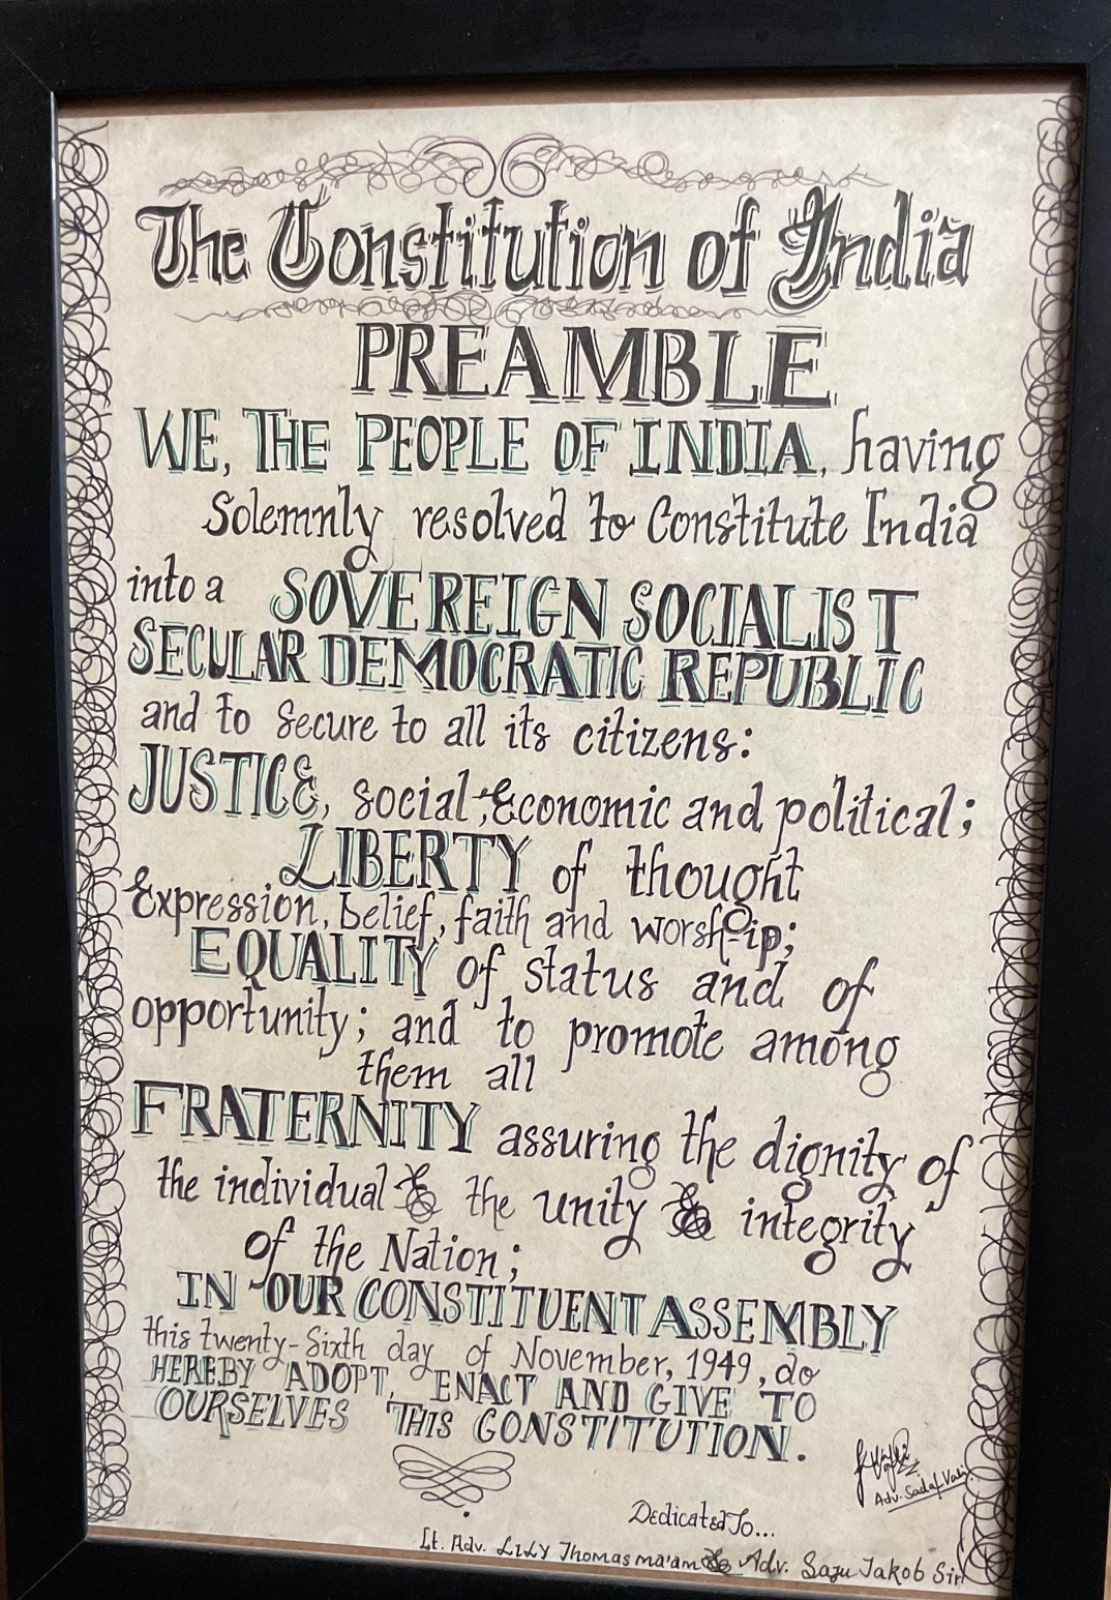 The Constitution of India
PREAMBLE
WE, THE PEOPLE OF INDIA, having
Solemnly resolved to Constitute India
into a SOVEREIGN SOCIALIST
SECULAR DEMOCRATIC REPUBLIC
and to secure to all its citizens:
JUSTICE, social, Economic and political;
LIBERTY of thought
Expression, belief, faith and worship;
EQUALITY of status and of
opportunity; and to promote among
them all
FRATERNITY assuring the dignity of
the individual & the unity & integrity
of the Nation;
IN OUR CONSTITUENT ASSEMBLY
this twenty-Sixth day of November, 1949, do
HEREBY ADOPT, ENACT AND GIVE TO
OURSELVES THIS CONSTITUTION.
Adv. Sadaf Vali
Dedicated To...
Lt. Adv. LILY Thomas ma'am & Adv. Saju Jakob Sir